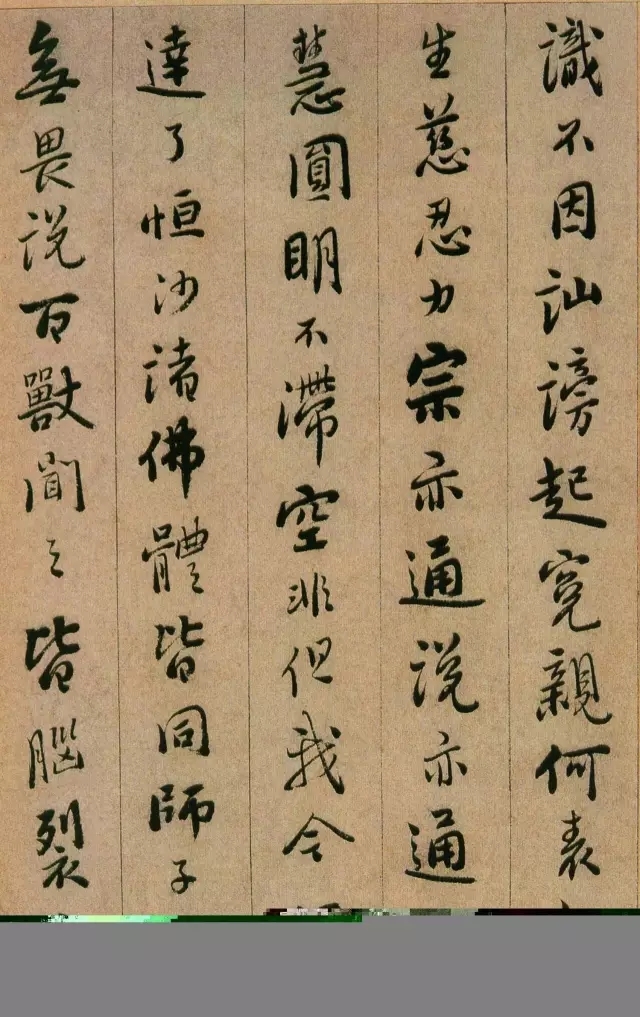 識不因訕謗起寃親何表
生慈忍力宗亦通説亦通
慧圓明不滯空非但我今
達了恒沙諸佛體皆同師子
無畏説百獸聞之皆腦裂